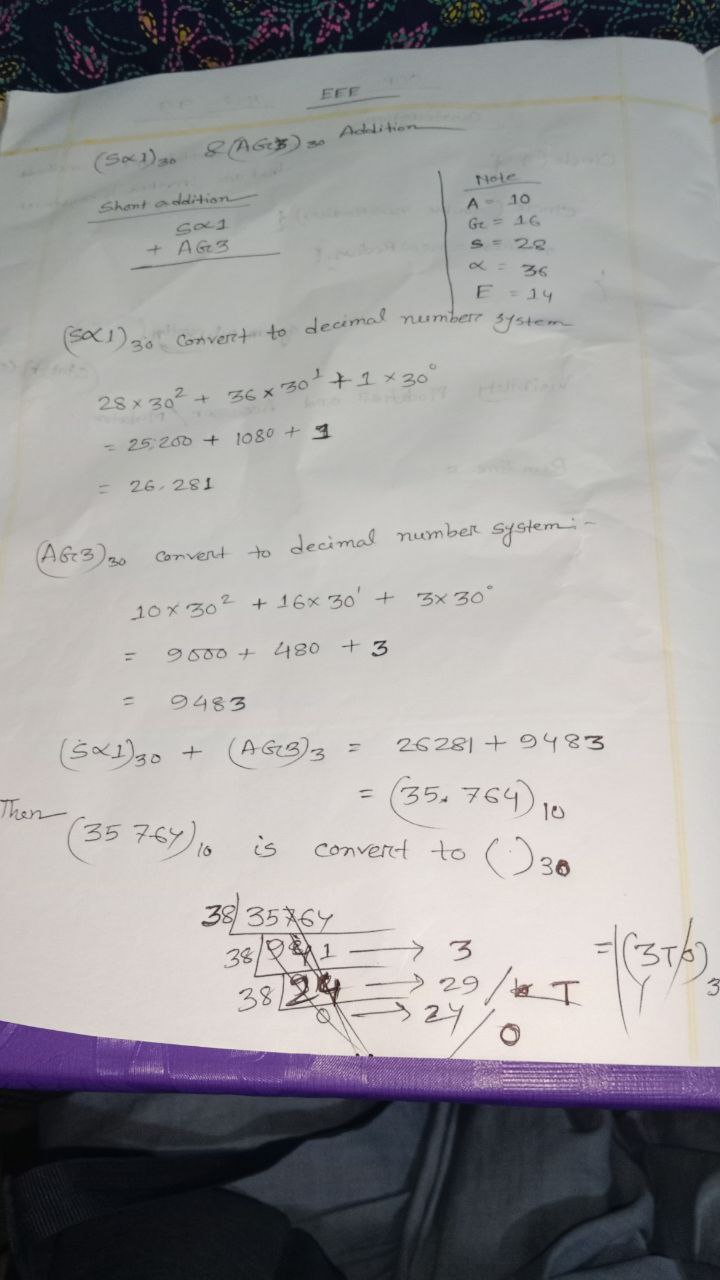 EEE
(Sα1)30 & (AG3)30 Addition
Short addition
Sα1
+ AG3
Note
A = 10
G = 16
S = 28
α = 36
E = 14
(Sα1)30 Convert to decimal number system
28 × 30² + 36 × 30¹ + 1 × 30°
= 25,200 + 1080 + 1
= 26,281
(AG3)30 convert to decimal number system:-
10 × 30² + 16 × 30¹ + 3 × 30°
= 9000 + 480 + 3
= 9483
(Sα1)30 + (AG3)3 = 26281 + 9483
= (35,764)10
Then
(35764)10 is convert to ( )30
38 35764
38 941 → 3
38 24 → 29 / T
0 → 24 / O